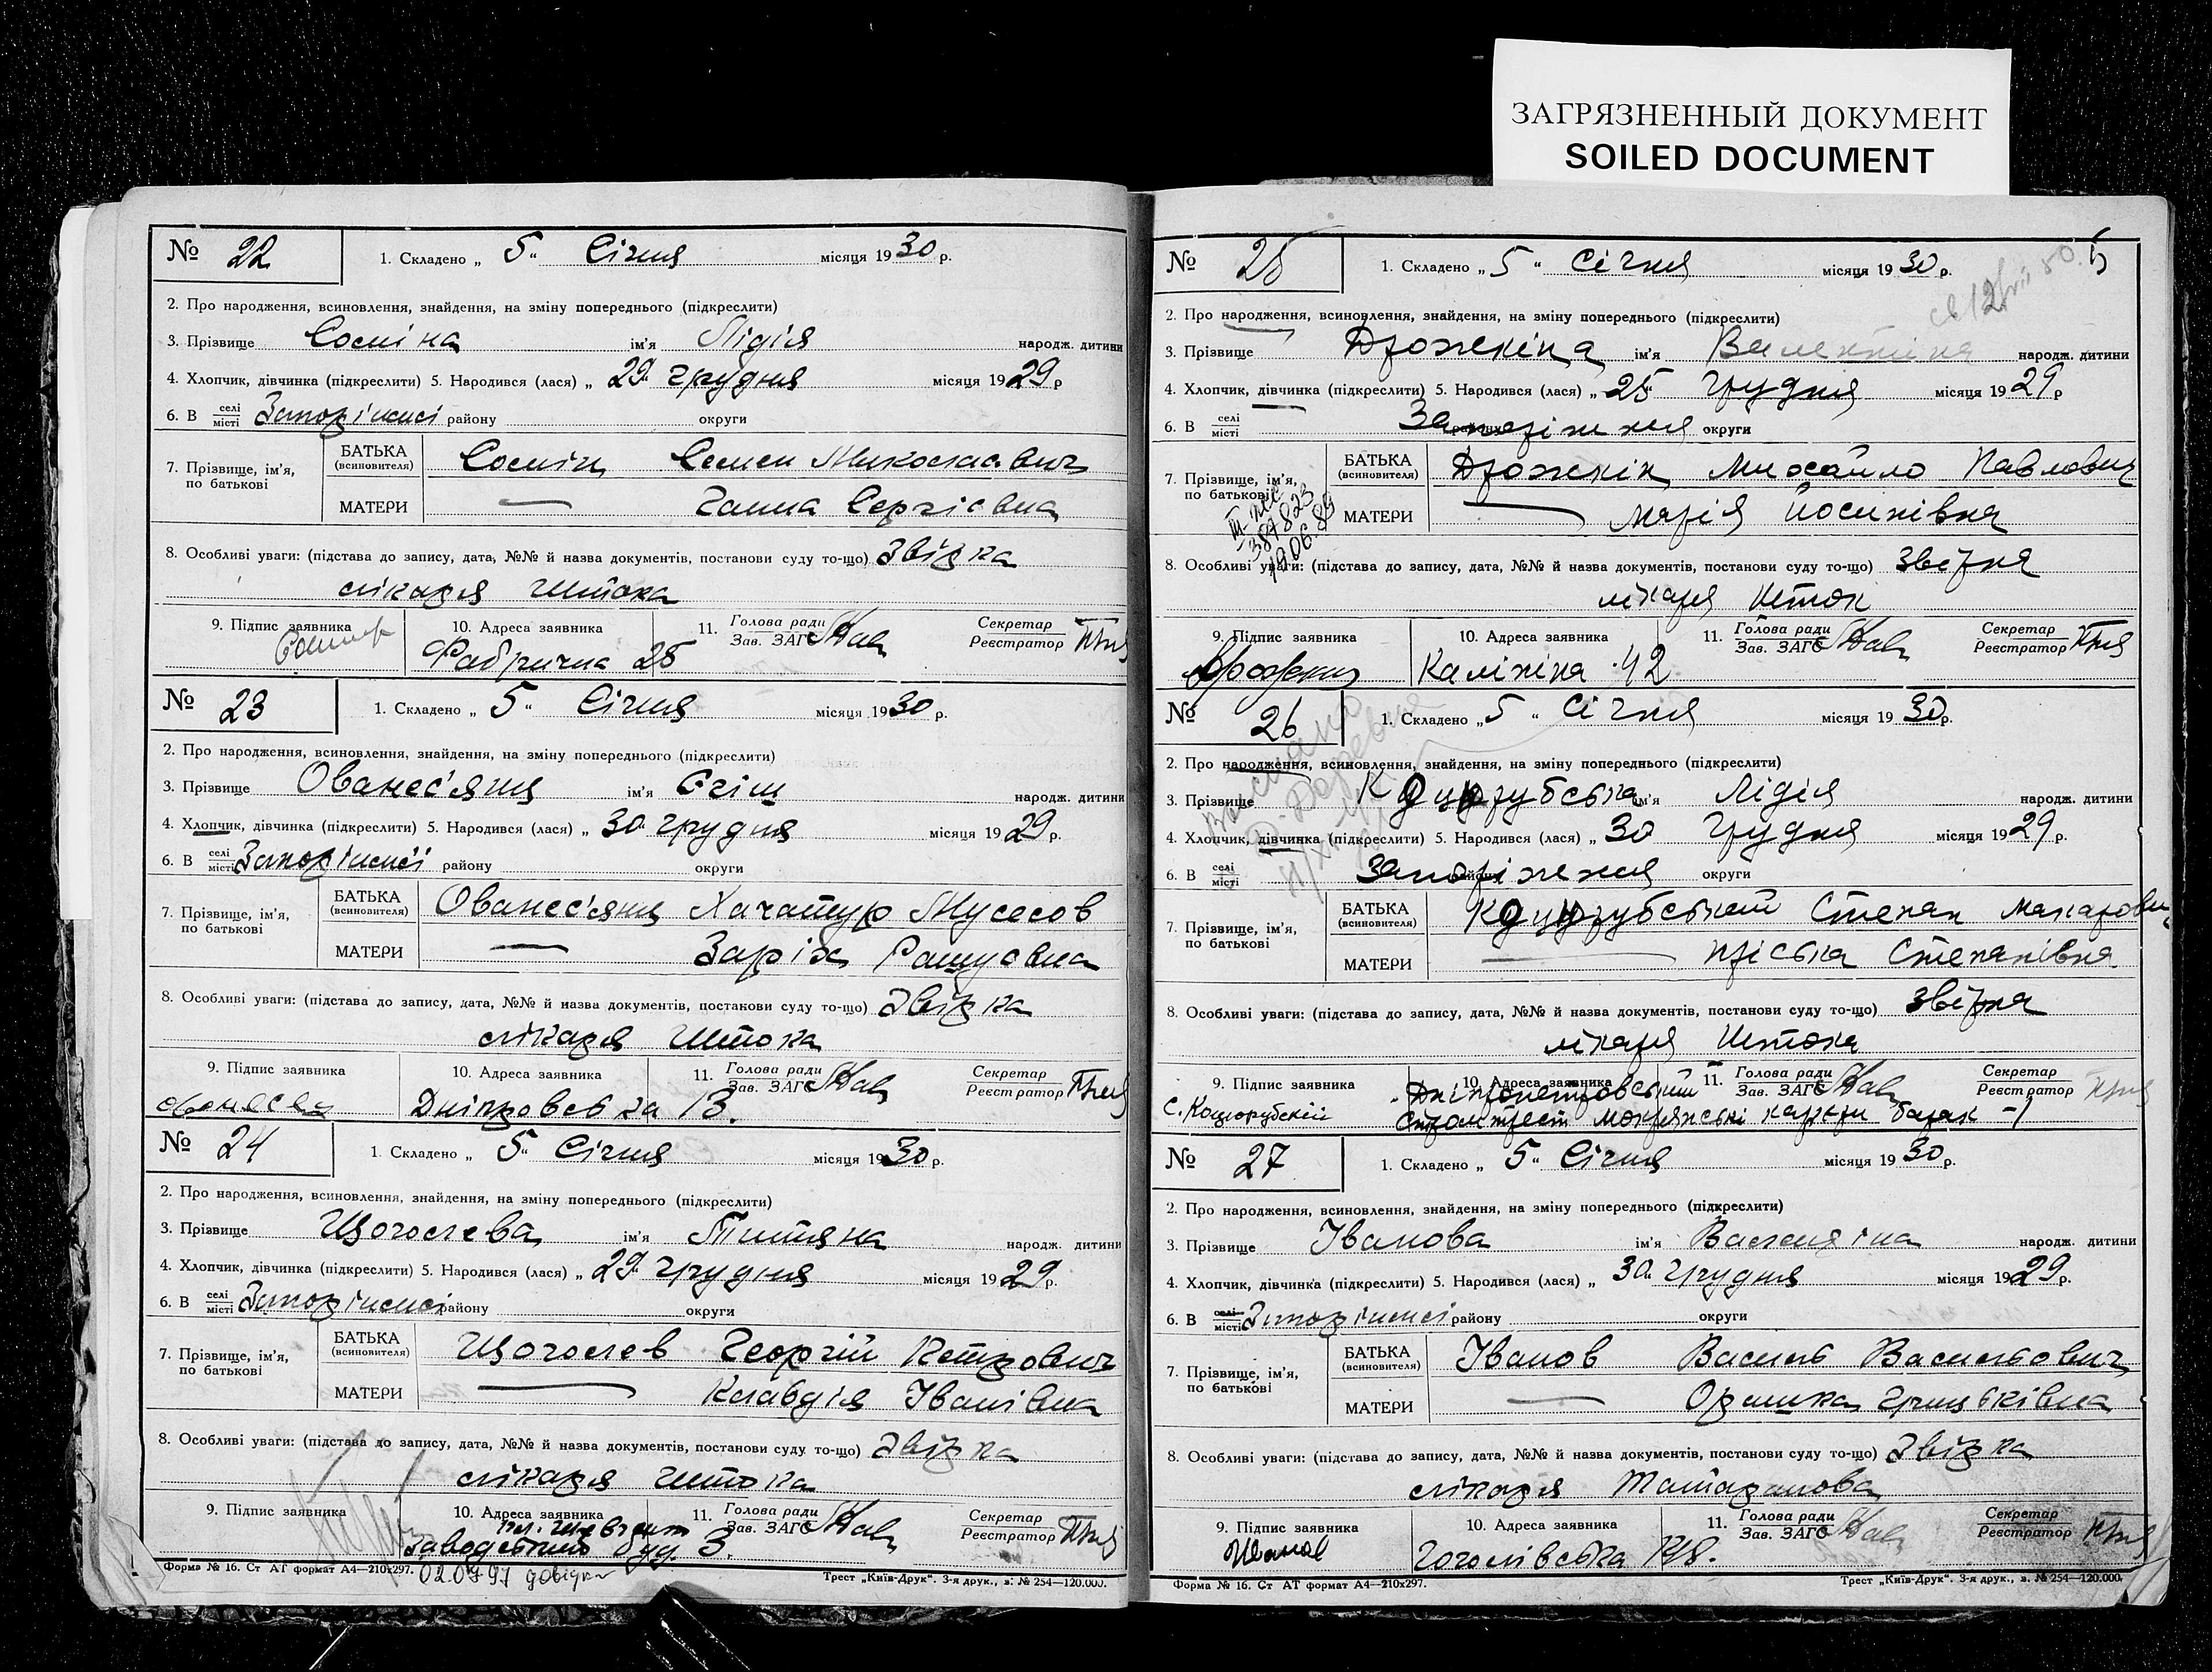 ЗАГРЯЗНЕННЫЙ ДОКУМЕНТ
SOILED DOCUMENT
№ 22
1. Складено „ 5 “ Січня місяця 1930 р.
2. Про народження, всиновлення, знайдення, на зміну попереднього (підкреслити)
3. Прізвище Соміна ім'я Лідія народж. дитини
4. Хлопчик, дівчинка (підкреслити) 5. Народився (лася) „ 29 “ грудня місяця 1929 р
6. В селі місті Запоріжжі району округи
7. Прізвище, ім'я, по батькові
БАТЬКА (всиновителя) Сомін Семен Миколаєвич
МАТЕРИ — Ганна Сергієвна
8. Особливі уваги: (підстава до запису, дата, №№ й назва документів, постанови суду то-що) Звідка
лікаря Штока
9. Підпис заявника 10. Адреса заявника 11. Голова ради Зав. ЗАГС Секретар Реєстратор
Фабрична 25
№ 23
1. Складено „ 5 “ Січня місяця 1930 р.
2. Про народження, всиновлення, знайдення, на зміну попереднього (підкреслити)
3. Прізвище Ованес'янц ім'я Єгіш народж. дитини
4. Хлопчик, дівчинка (підкреслити) 5. Народився (лася) „ 30 “ грудня місяця 1929 р.
6. В селі місті Запоріжжі району округи
7. Прізвище, ім'я, по батькові
БАТЬКА (всиновителя) Ованес'янц Хачатур Мусесов
МАТЕРИ —
8. Особливі уваги: (підстава до запису, дата, №№ й назва документів, постанови суду то-що) Звідка
лікаря Штока
9. Підпис заявника 10. Адреса заявника 11. Голова ради Зав. ЗАГС Секретар Реєстратор
Дніпровська 13.
№ 24
1. Складено „ 5 “ Січня місяця 1930 р.
2. Про народження, всиновлення, знайдення, на зміну попереднього (підкреслити)
3. Прізвище Щоголева ім'я Титяна народж. дитини
4. Хлопчик, дівчинка (підкреслити) 5. Народився (лася) „ 29 “ грудня місяця 1929 р.
6. В селі місті Запоріжжі району округи
7. Прізвище, ім'я, по батькові
БАТЬКА (всиновителя) Щоголев Георгій Петрович
МАТЕРИ — Клавдія Іванівна
8. Особливі уваги: (підстава до запису, дата, №№ й назва документів, постанови суду то-що) Звідка
лікаря Штока
9. Підпис заявника 10. Адреса заявника 11. Голова ради Зав. ЗАГС Секретар Реєстратор
буд. 3.
Форма № 16. Ст АТ формат А4—210x297.
Трест „Київ-Друк“. 3-я друк., з. № 254—120.000.
№ 25
1. Складено „ 5 “ Січня місяця 1930 р.
2. Про народження, всиновлення, знайдення, на зміну попереднього (підкреслити)
3. Прізвище Дрожжіна ім'я Валентіна народж. дитини
4. Хлопчик, дівчинка (підкреслити) 5. Народився (лася) „ 25 “ грудня місяця 1929 р
6. В селі місті Запоріжжя округи
7. Прізвище, ім'я, по батькові
БАТЬКА (всиновителя) Дрожжін Михайло Павлович
МАТЕРИ — Марія Йосипівна
387823
19.06.89
8. Особливі уваги: (підстава до запису, дата, №№ й назва документів, постанови суду то-що) Звідка
лікаря Шток
9. Підпис заявника 10. Адреса заявника 11. Голова ради Зав. ЗАГС Секретар Реєстратор
Калініна 42
№ 26
1. Складено „ 5 “ Січня місяця 1930 р.
2. Про народження, всиновлення, знайдення, на зміну попереднього (підкреслити)
3. Прізвище Коцюрубська ім'я Лідія народж. дитини
4. Хлопчик, дівчинка (підкреслити) 5. Народився (лася) „ 30 грудня місяця 1929 р.
6. В селі місті Запоріжжя району округи
7. Прізвище, ім'я, по батькові
БАТЬКА (всиновителя) Коцюрубський Степан Макарович
МАТЕРИ — Пріська Степанівна
8. Особливі уваги: (підстава до запису, дата, №№ й назва документів, постанови суду то-що) Звідка
лікаря Штока
9. Підпис заявника 10. Адреса заявника 11. Голова ради Зав. ЗАГС Секретар Реєстратор
С. Коцюрубский
Дніпропетровський
барак - 1
№ 27
1. Складено „ 5 “ Січня місяця 1930 р.
2. Про народження, всиновлення, знайдення, на зміну попереднього (підкреслити)
3. Прізвище Іванова ім'я народж. дитини
4. Хлопчик, дівчинка (підкреслити) 5. Народився (лася) „ 30 “ грудня місяця 1929 р.
6. В селі місті Запоріжжі району округи
7. Прізвище, ім'я, по батькові
БАТЬКА (всиновителя) Іванов Василь Васильович
МАТЕРИ — Оришка Грицьківна
8. Особливі уваги: (підстава до запису, дата, №№ й назва документів, постанови суду то-що) Звідка
лікаря Татаринова
9. Підпис заявника 10. Адреса заявника 11. Голова ради Зав. ЗАГС Секретар Реєстратор
Иванов
Гоголівська 178.
Форма № 16. Ст АТ формат А4—210x297.
Трест „Київ-Друк“. 3-я друк., з. № 254—120.000.